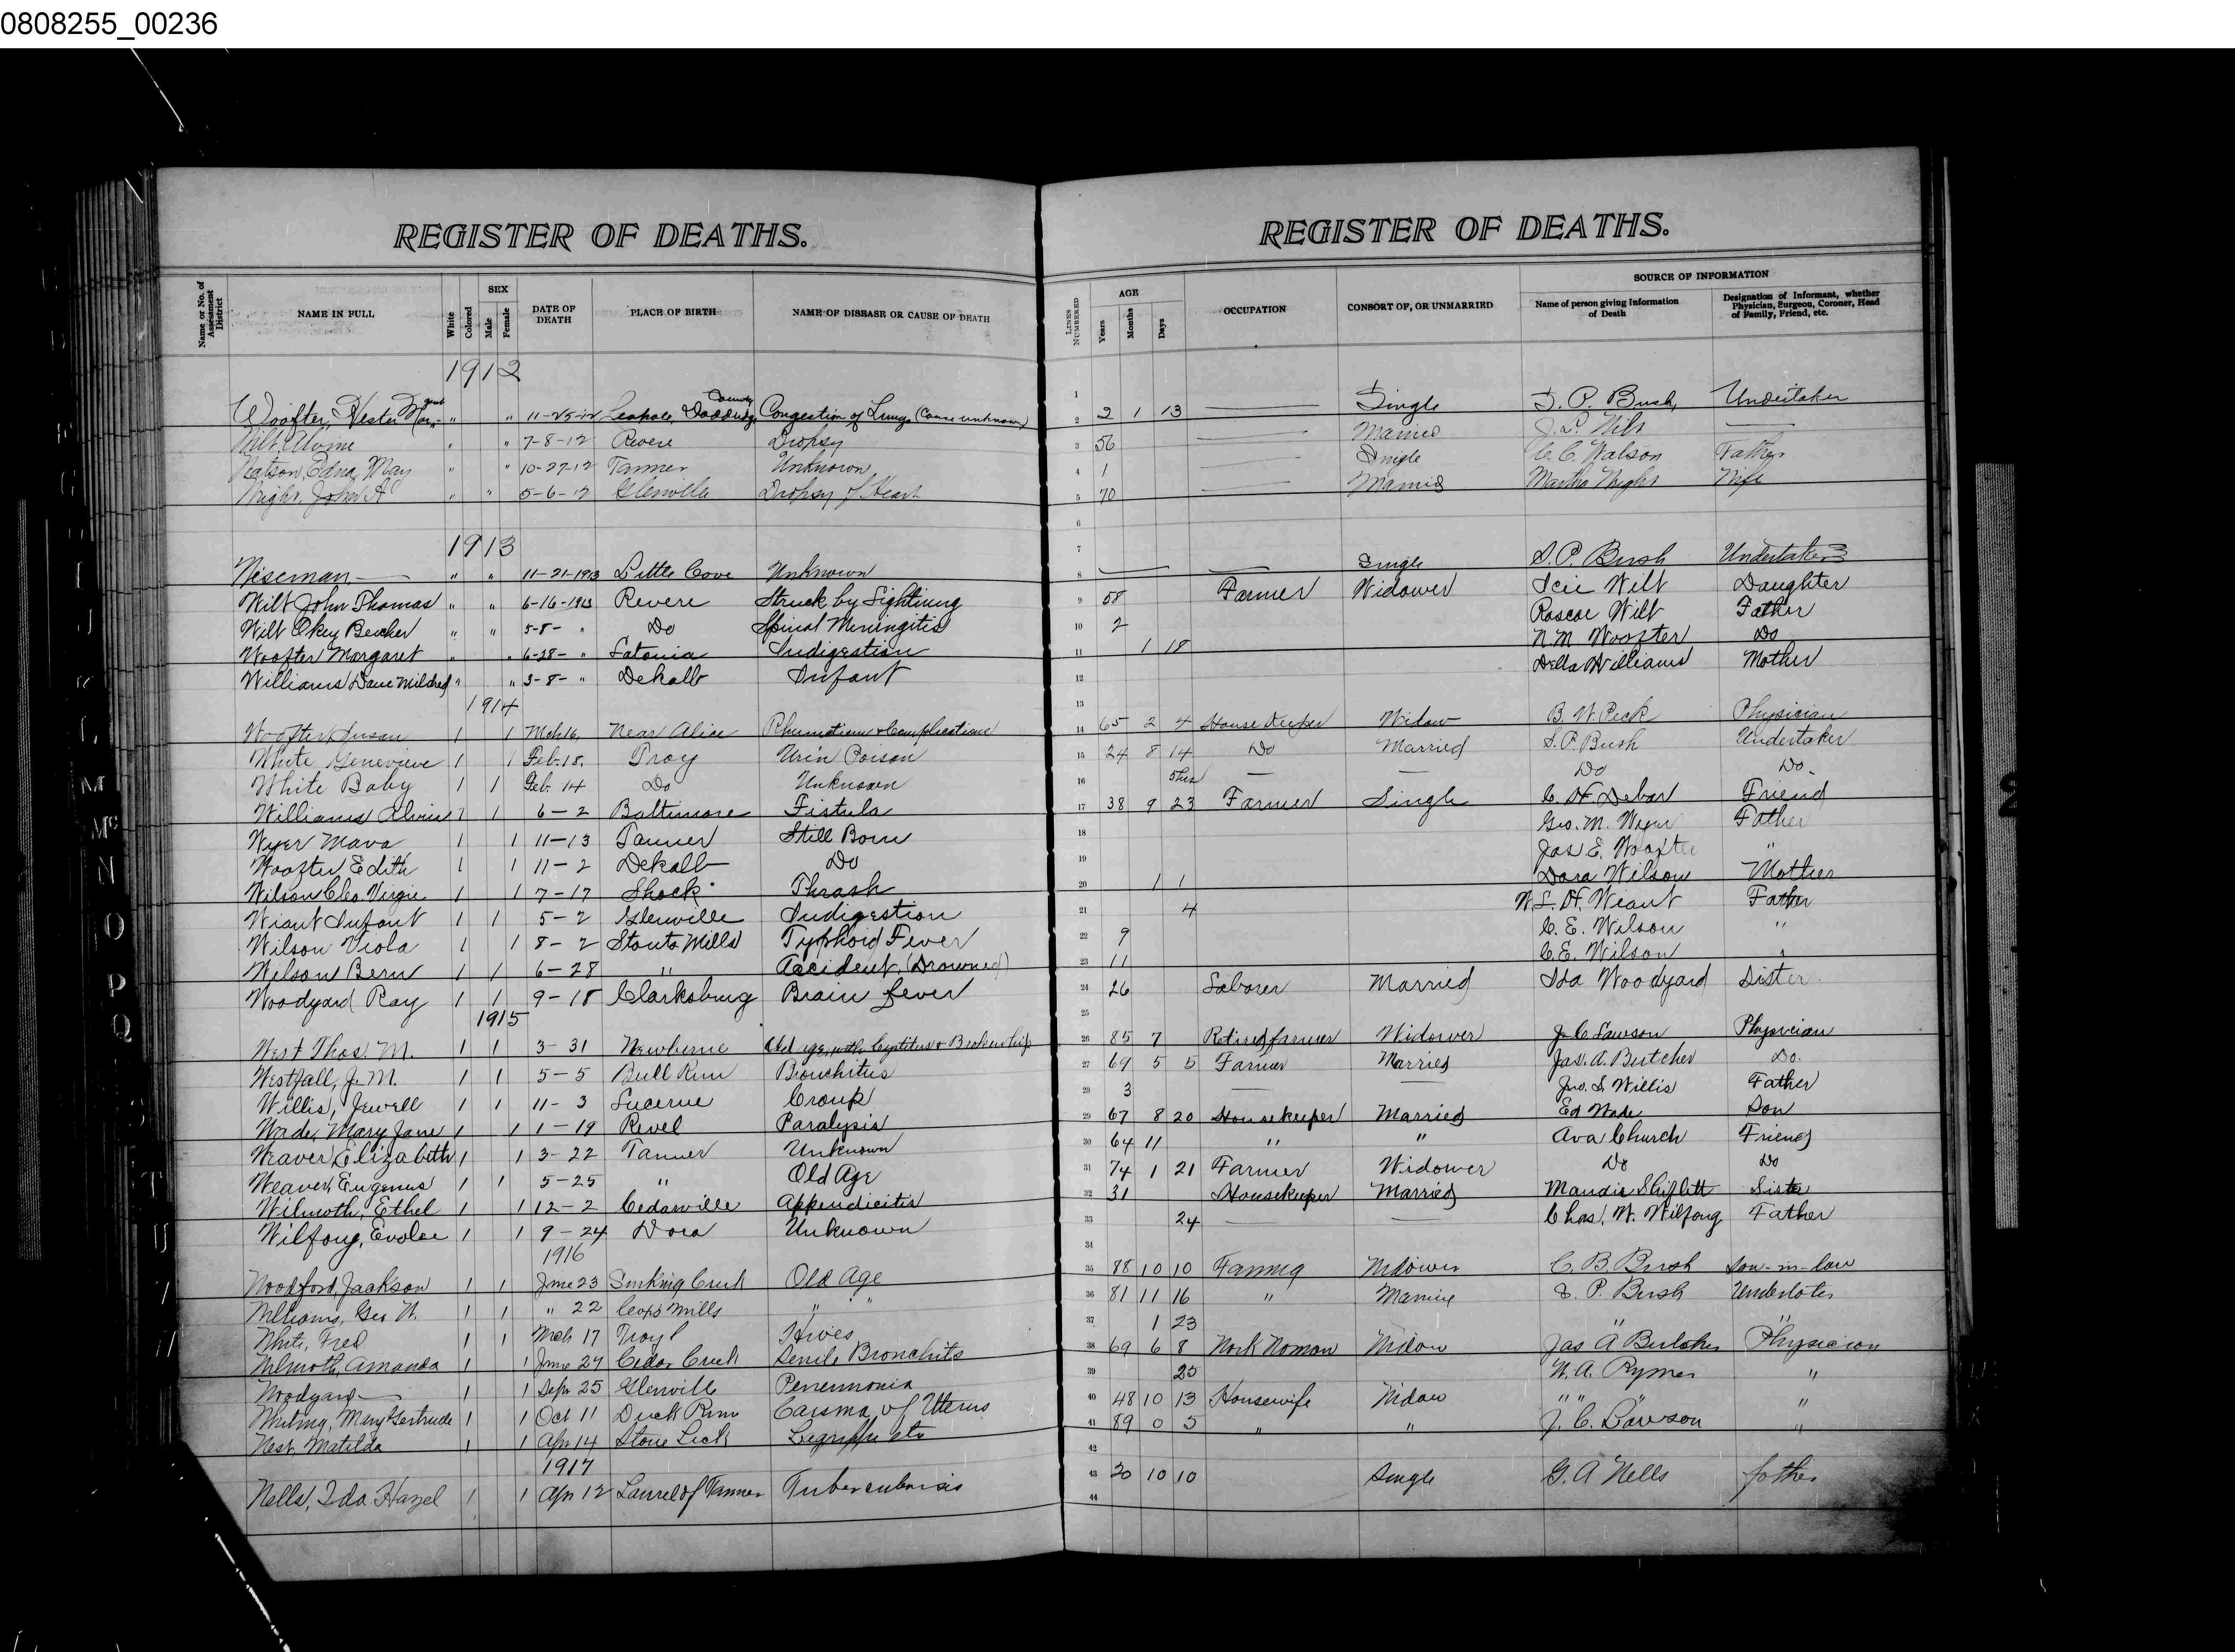 0808255_00236
REGISTER OF DEATHS.
Name or No. of Assessment District
NAME IN FULL
White
Colored
SEX
Male
Female
DATE OF DEATH
PLACE OF BIRTH
NAME OF DISEASE OR CAUSE OF DEATH
1912
Woofter, Hester Mar- garet " " 11-25-12 Leopole, Doddridge County Congestion of Lungs (Cause unknown)
Wilt, Alvine " " 7-8-12 Revere Dropsy
Watson, Edna May " " 10-27-12 Tanner Unknown
Wright, John A " " 5-6-12 Glenville Dropsy of Heart
1913
Wiseman — " " 11-21-1913 Little Cove Unknown
Wilt John Thomas " " 6-16-1913 Revere Struck by Lightning
Wilt Okey Beecher " " 5-8- " Do Spinal Meningitis
Woofter Margaret " " 6-28- " Latonia Indigestion
Williams Mildred " " 3-8- " Dekalb Infant
1914
Woofter Susan 1 1 Mch 16, Near Alice Rhumatism & Complications
White Genevieve 1 1 Feb-18, Troy Urin Poison
White Baby 1 1 Feb. 14 Do Unknown
Williams Alvin 1 1 6-2 Baltimore Fistula
Wyer Mava 1 1 11-13 Tanner Still Born
Woofter Edith 1 1 11-2 Dekalb Do
Wilson Cleo Virgie 1 1 7-17 Shock Thrash
Wiant Infant 1 1 5-2 Glenville Indigestion
Wilson Viola 1 1 8-2 Stouts Mills Typhoid Fever
Wilson Bern 1 1 6-28 " Accident, (Drowned)
Woodyard Ray 1 1 9-18 Clarksburg Brain fever
1915
West Thos. M. 1 1 3-31 Newberne Old age, with Cystitus & Broken hip
Westfall, J. M. 1 1 5-5 Bull Run Bronchitus
Willis, Jewell 1 1 11-3 Lucerne Croup
Wade, Mary Jane 1 1 1-19 Revel Paralysis
Weaver, Elizabeth 1 1 3-22 Tanner Unknown
Weaver, Eugenus 1 1 5-25 " Old Age
Wilmoth, Ethel 1 1 12-2 Cedarville Appendicitis
Wilfong, Evolee 1 1 9-24 Dora Unknown
1916
Woodford, Jackson 1 1 June 23 Sinking Creek Old Age
Williams, Geo W. 1 1 " 22 Coxs Mills " "
White, Fred 1 1 Mch 17 Troy Hives
Wilmoth, Amanda 1 1 June 24 Cedar Creek Senile Bronchits
Woodyard — 1 1 Sept 25 Glenville Penenmonia
Whiting, Mary Gertrude 1 1 Oct 11 Duck Run of Utterus
West, Matilda 1 1 Apr 14 Stone Lick Legrippe etc
1917
Wells, Ida Hazel 1 1 Apr 12 Laurel of Tanner Tuberculosis
REGISTER OF DEATHS.
LINES NUMBERED
AGE
Years
Months
Days
OCCUPATION
CONSORT OF, OR UNMARRIED
SOURCE OF INFORMATION
Name of person giving Information of Death
Designation of Informant, whether Physician, Surgeon, Coroner, Head of Family, Friend, etc.
1
2 2 1 13 — Single S. P. Bush, Undertaker
3 56 — Married J. L. Wilt —
4 1 — Single C. C. Watson Father
5 70 — Married Martha Wright Wife
6
7
8 — — Single S. P. Bush Undertaker
9 58 Farmer Widower Icie Wilt Daughter
10 2 Roscoe Wilt Father
11 1 18 N. M. Woofter Do
12 Della Williams Mother
13
14 65 2 4 House Keeper Widow B. W. Peck Physician
15 24 8 14 Do Married S. P. Bush Undertaker
16 5 hrs — — Do Do.
17 38 9 23 Farmer Single C. H. Debar Friend
18 Geo. M. Wyer Father
19 Jas E. Woofter "
20 1 1 Dora Wilson Mother
21 4 W. L. H. Wiant Father
22 9 C. E. Wilson "
23 11 C. E. Wilson "
24 26 Laborer Married Ida Woodyard Sister
25
26 85 7 Retired farmer Widower J. C. Lawson Physician
27 69 5 5 Farmer Married Jas. A. Butcher Do.
28 3 — — Jno. S. Willis Father
29 67 8 20 Housekeeper Married Ed Wade Son
30 64 11 " " Ava Church Friend
31 74 1 21 Farmer Widower Do Do
32 31 Housekeeper Married Maudie Shiflett Sister
33 24 — — Chas. W. Wilfong Father
34
35 88 10 10 Farming Widower C. B. Bush Son-in-law
36 81 11 16 " Married S. P. Bush Undertaker
37 1 23 " "
38 69 6 8 Work Woman Widow Jas A Butcher Physician
39 25 W. A. Rymer "
40 48 10 13 Housewife Widow " " " "
41 89 0 5 " " J. C. Lawson "
42
43 20 10 10 Single G. A Wells father
44
M
Mc
N
O
P
Q
T
U